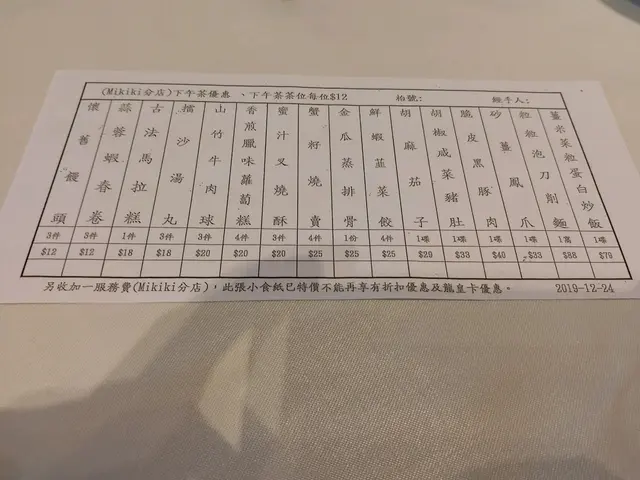 (Mikiki分店)下午茶優惠 、下午茶茶位每位$12 枱號: 經手人:
懷舊饅頭
蒜蓉蝦春卷
古法馬拉糕
擂沙湯丸
山竹牛肉球
香煎臘味蘿蔔糕
蜜汁叉燒酥
蟹籽燒賣
金瓜蒸排骨
鮮蝦韮菜餃
胡麻茄子
胡椒咸菜豬肚
脆皮黑豚肉
砂薑鳳爪
粒粒泡刀削麵
薑米菜粒蛋白炒飯
3件 3件 1件 3件 3件 4件 3件 4件 1份 4件 1碟 1碟 1碟 1碟 1窩 1碟
$12 $12 $18 $18 $20 $20 $20 $25 $25 $25 $29 $33 $40 $33 $88 $79
另收加一服務費(Mikiki分店)，此張小食紙巳特價不能再享有折扣優惠及龍皇卡優惠。 2019-12-24